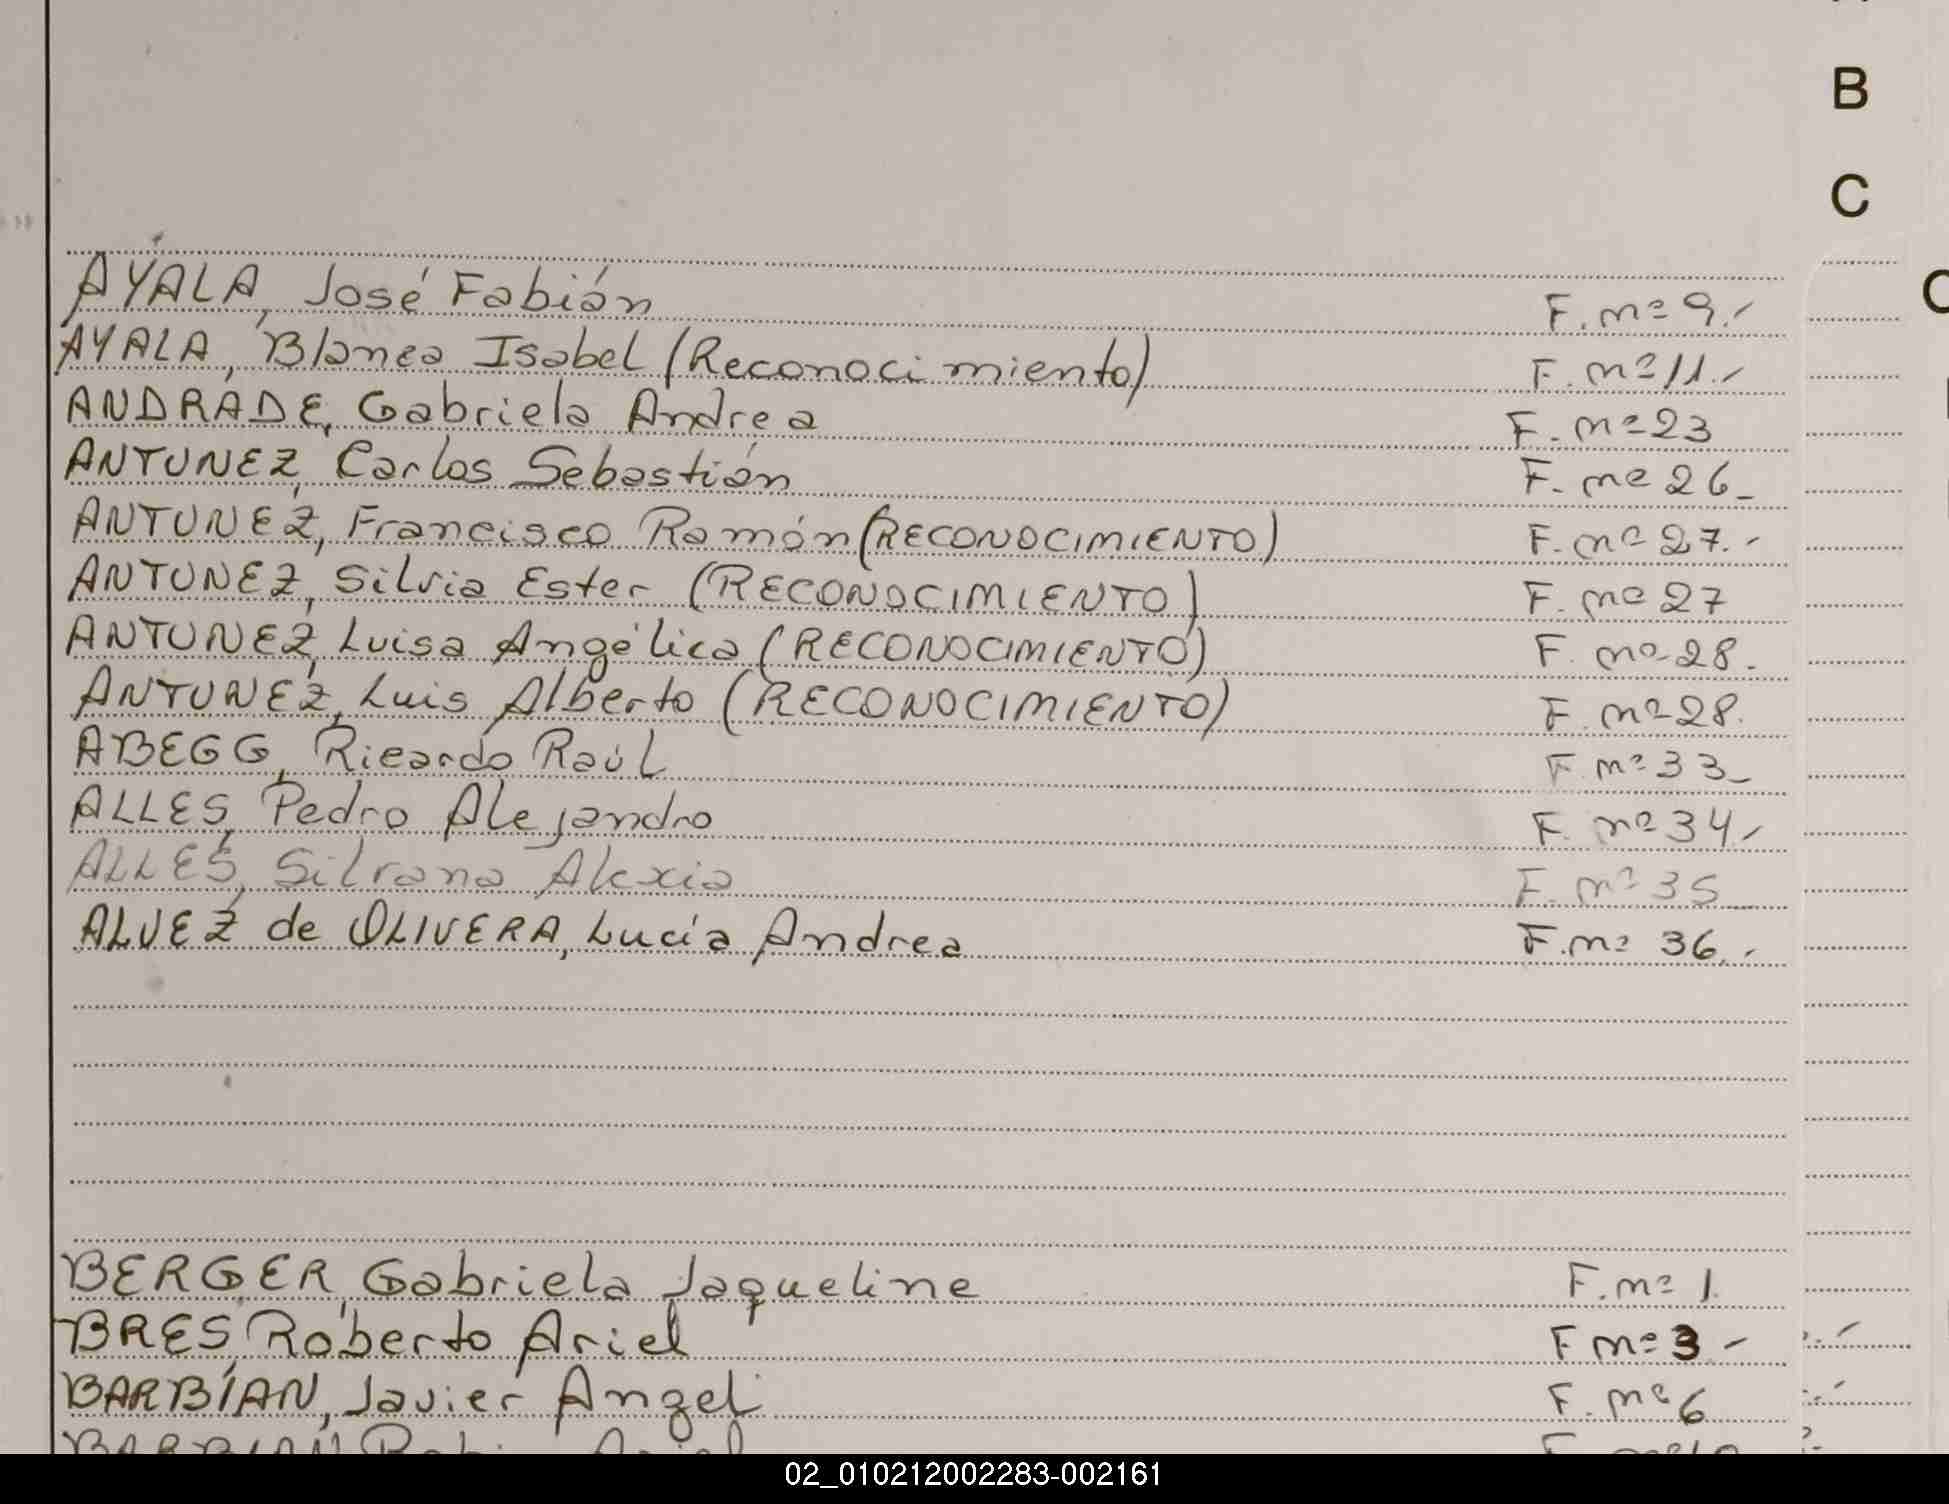 B
C
AYALA, José Fabián F. nº 9.-
AYALA, Blanca Isabel (Reconocimiento) F. nº 11.-
ANDRADE, Gabriela Andrea F. nº 23
ANTUNEZ, Carlos Sebastián F. nº 26-
ANTUNEZ, Francisco Ramón (RECONOCIMIENTO) F. nº 27.-
ANTUNEZ, Silvia Ester (RECONOCIMIENTO) F. nº 27
ANTUNEZ, Luisa Angélica (RECONOCIMIENTO) F. nº 28.
ANTUNEZ, Luis Alberto (RECONOCIMIENTO) F. nº 28.
ABEGG, Ricardo Raúl F. nº 33-
ALLES, Pedro Alejandro F. nº 34.-
ALLES, Silvana Alexia F. nº 35-
ALVEZ de OLIVERA, Lucía Andrea F. nº 36.-
BERGER, Gabriela Jaqueline F. nº 1.
BRES, Roberto Ariel F nº 3.-
BARBIAN, Javier Angel F. nº 6
02_010212002283-002161